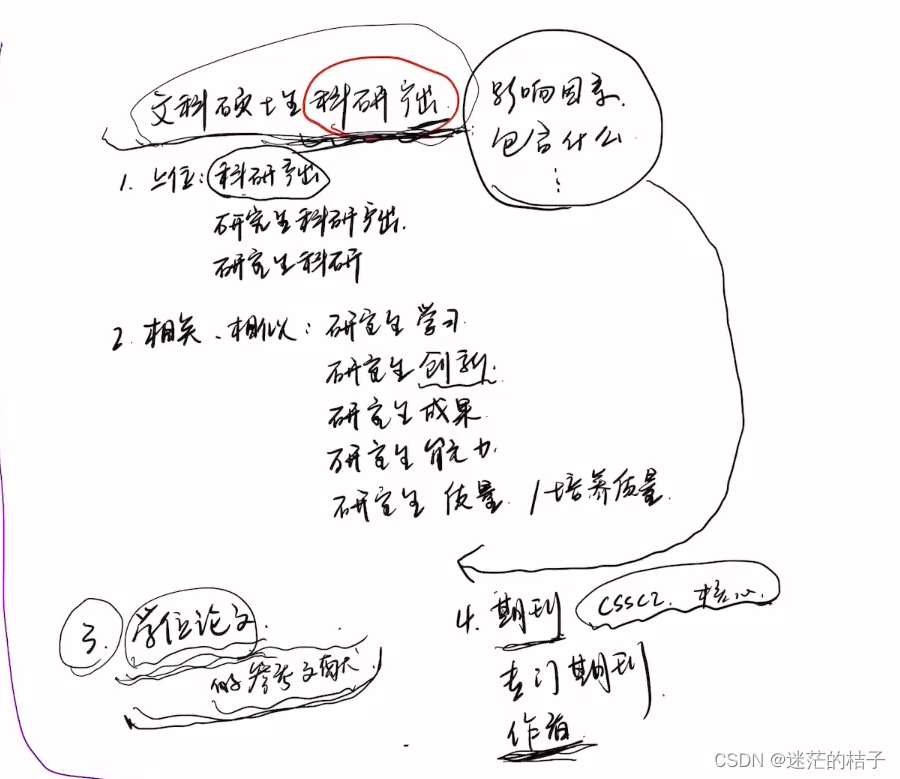 文科硕士生科研产出
影响因素.
包含什么
⋮
1. 上位: 科研产出
研究生科研产出.
研究生科研
2. 相关、相似: 研究生学习.
研究生创新.
研究生成果.
研究生能力.
研究生 质量. /培养质量.
3. 学位论文.
的参考文献
4. 期刊 CSSCI. 核心.
专门期刊
作者
CSDN @迷茫的桔子